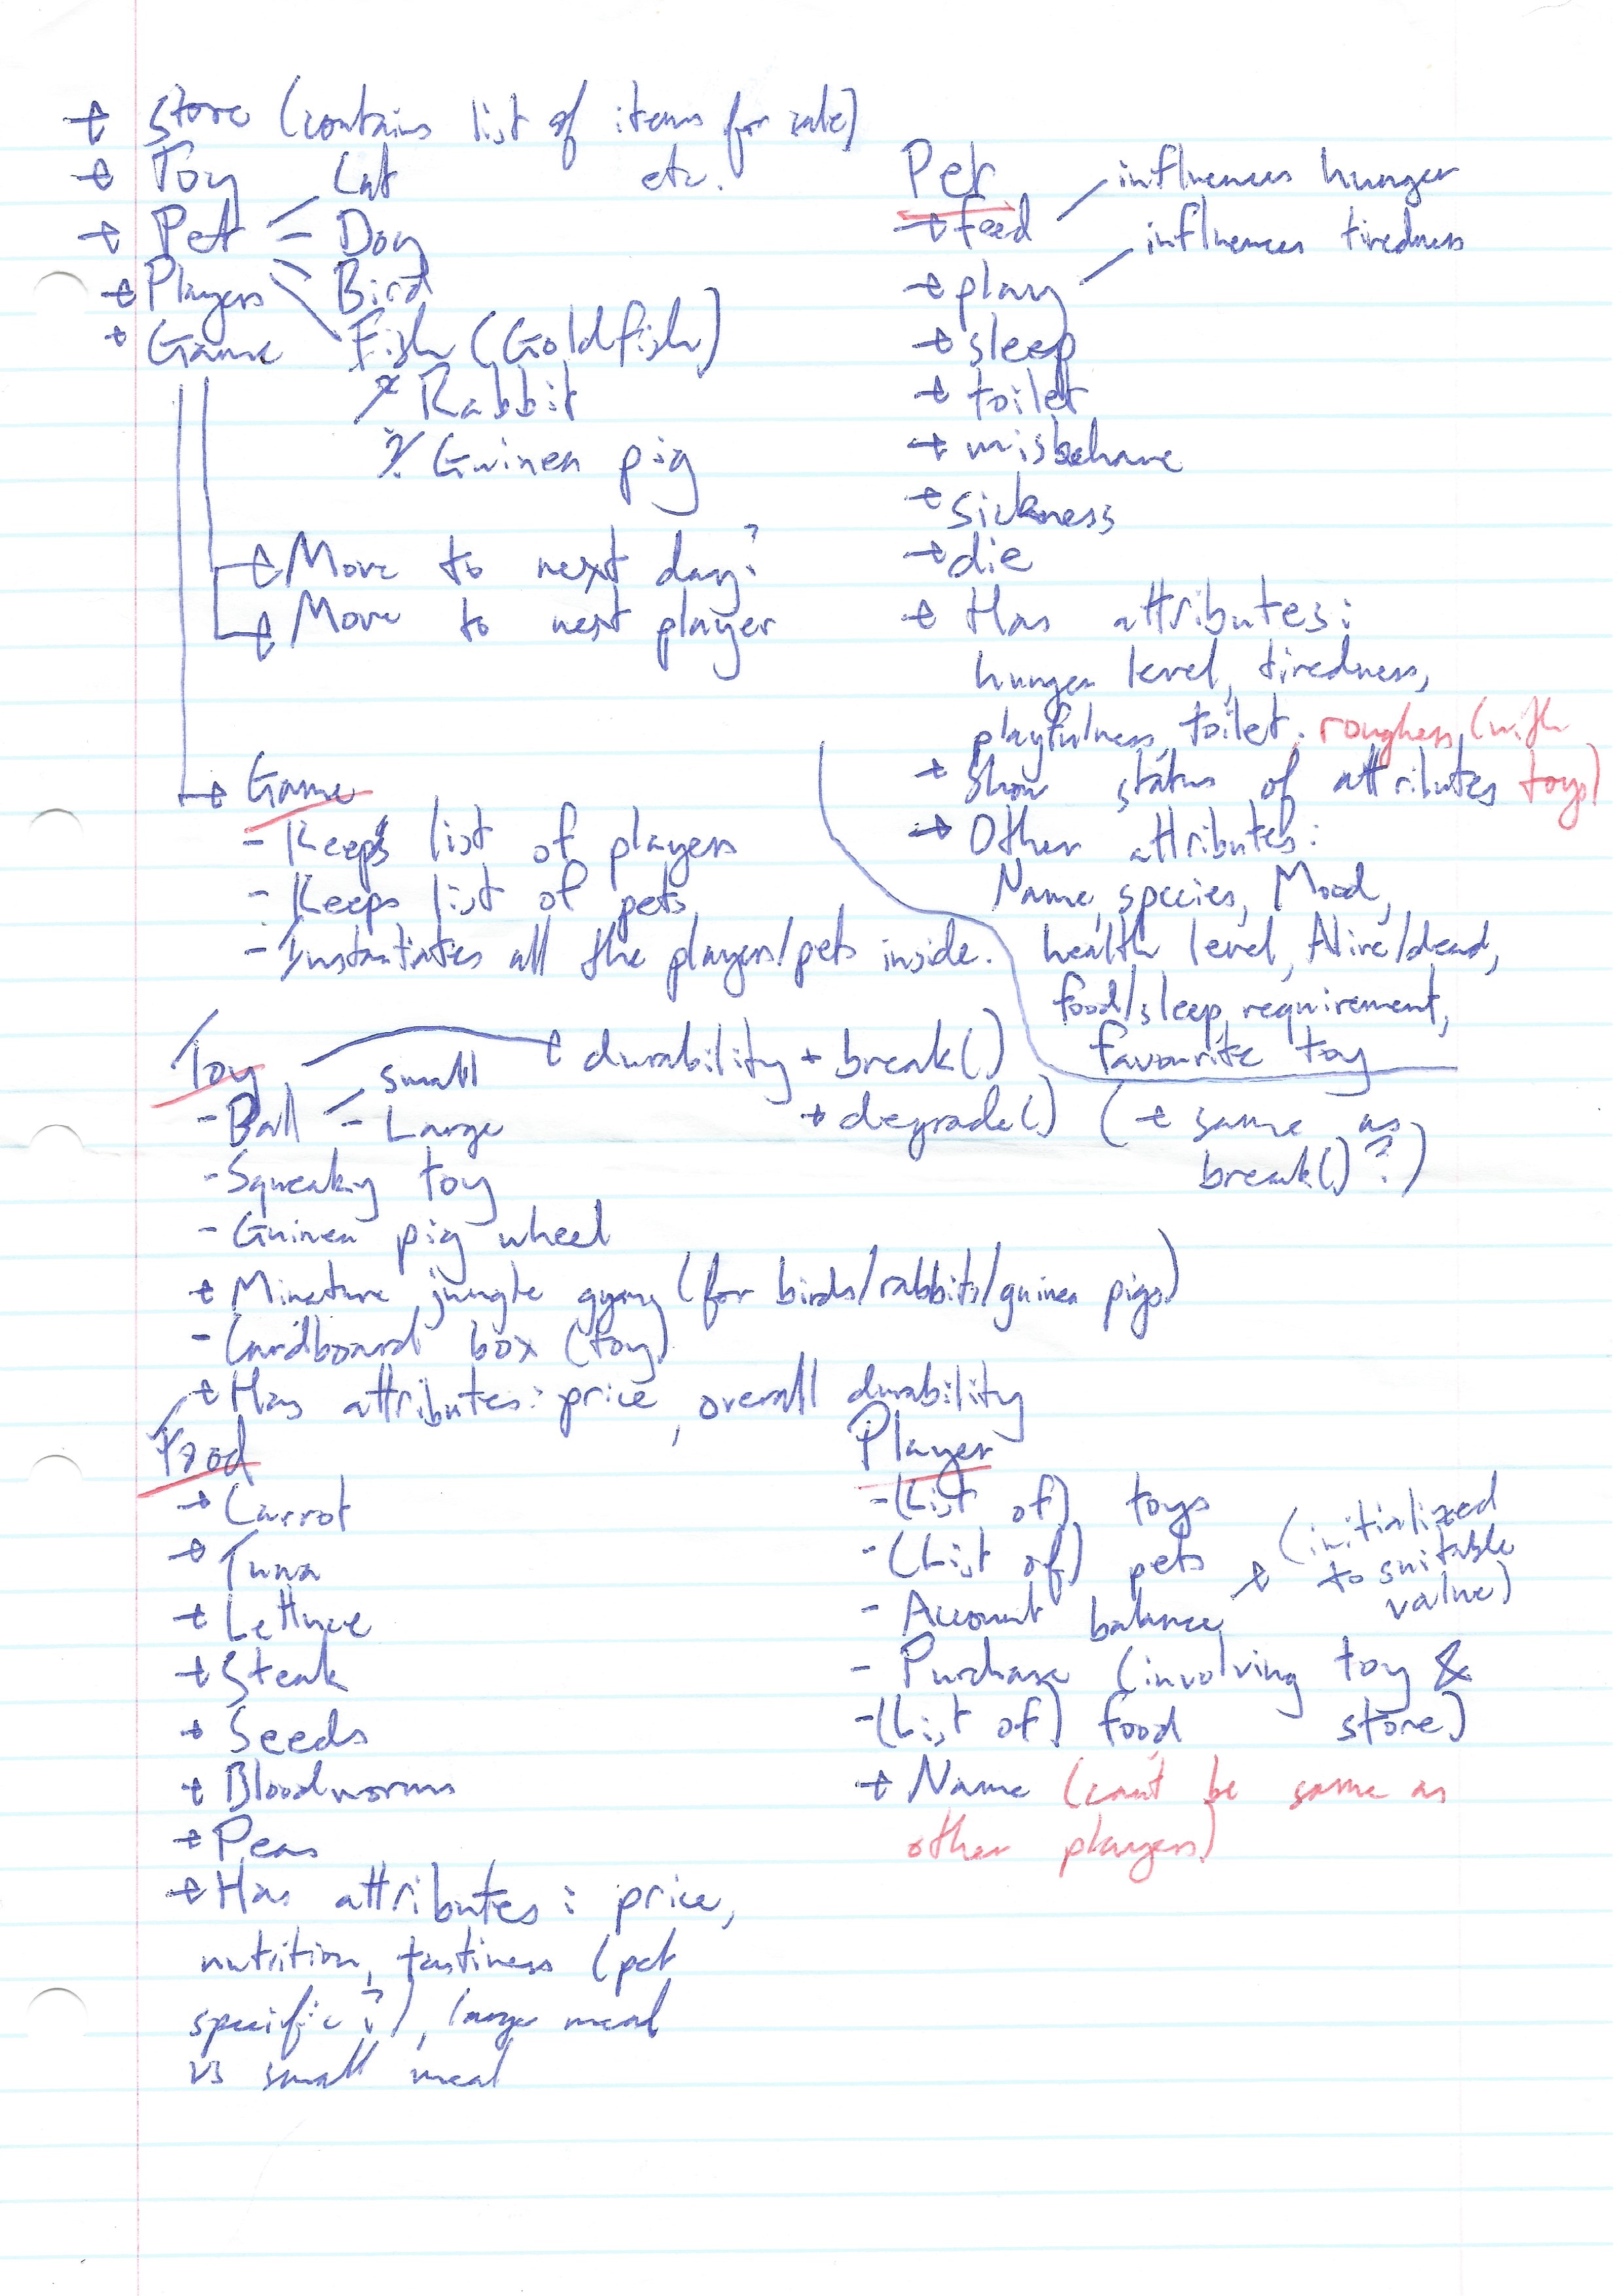 → Store (contains list of items for sale)
→ Toy
→ Pet
→ Players
→ Game
Cat etc.
Dog
Bird
Fish (Goldfish)
Rabbit
Guinea pig
→ Move to next day?
→ Move to next player
→ Game
- Keeps list of players
- Keeps list of pets
- Instantiates all the players/pets inside.
Pet
→ feed
influences hunger
→ play
influences tiredness
→ sleep
→ toilet
→ misbehave
→ sickness
→ die
→ Has attributes:
hunger level, tiredness,
playfulness, toilet, roughness (with
toys)
→ Show status of attributes
→ Other attributes:
Name, species, Mood,
health level, Alive/dead,
food/sleep requirement,
favourite toy
Toy → durability → break()
→ degrade() (→ same as
break()?)
- Ball - small
- Large
- Squeaky toy
- Guinea pig wheel
→ Minature jungle gym (for birds/rabbits/guinea pigs)
- Cardboard box (toy)
→ Has attributes: price, overall durability
Food
→ Carrot
→ Tuna
→ Lettuce
→ Steak
→ Seeds
→ Bloodworms
→ Peas
→ Has attributes: price,
nutrition, tastiness (pet
specific?), large meal
vs small meal
Player
- (List of) toys
- (List of) pets
- Account balance → (initialized
to suitable
value)
- Purchase (involving toy &
store)
- (List of) food
→ Name (can't be same as
other players)